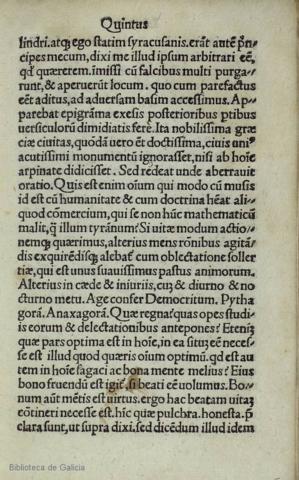 Quintus
lindri. atq; ego statim syracusanis. erāt autē p̄ri
cipes mecum, dixi me illud ipsum arbitrari eē,
qd̄ quærerem. īmissi cū falcibus multi purga/
runt, & aperuerūt locum. quo cum parefactus
eēt aditus, ad aduersam basim accessimus. Ap/
parebat epigrāma exesis posterioribus ptibus
versiculorū dimidiatis fere. Ita nobilissima græ
ciæ ciuitas, quōdā uero ēt doctissima, ciuis uniꝰ
acutissimi monumentū ignorasset, nisi ab hoīe
arpinate didicisset. Sed redeat unde aberrauit
oratio. Quis est enim oīum qui modo cū musis
id est cū humanitate & cum doctrina hēat ali/
quod cōmercium, qui se non hūc mathematicū
malit, q̄ illum tyrānum? Si uitæ modum actio/
nemq; quærimus, alterius mens rōnibus agitā/
dis exquirēdisq; alebat̄ cum oblectatione soller
tiæ, qui est unus suauissimus pastus animorum.
Alterius in cæde & iniuriis, cū & diurno & no
cturno metu. Age confer Democritum. Pytha
gorā. Anaxagorā. Quæ regna? quas opes studi/
is eorum & delectationibus antepones? Eteniꝫ
quæ pars optima est in hoīe, in ea sitū eē neces/
se est illud quod quæris oīum optimū. qd est au
tem in hoīe sagaci ac bona mente melius? Eius
bono fruendū est igit̄, si beati eē uolumus. Bo/
num aūt mētis est uirtus. ergo hac beatam uitā
cōtineri necesse est. hīc quæ pulchra. honesta. p̄
clara sunt, ut supra dixi. sed dicēdum illud idem
Biblioteca de Galicia